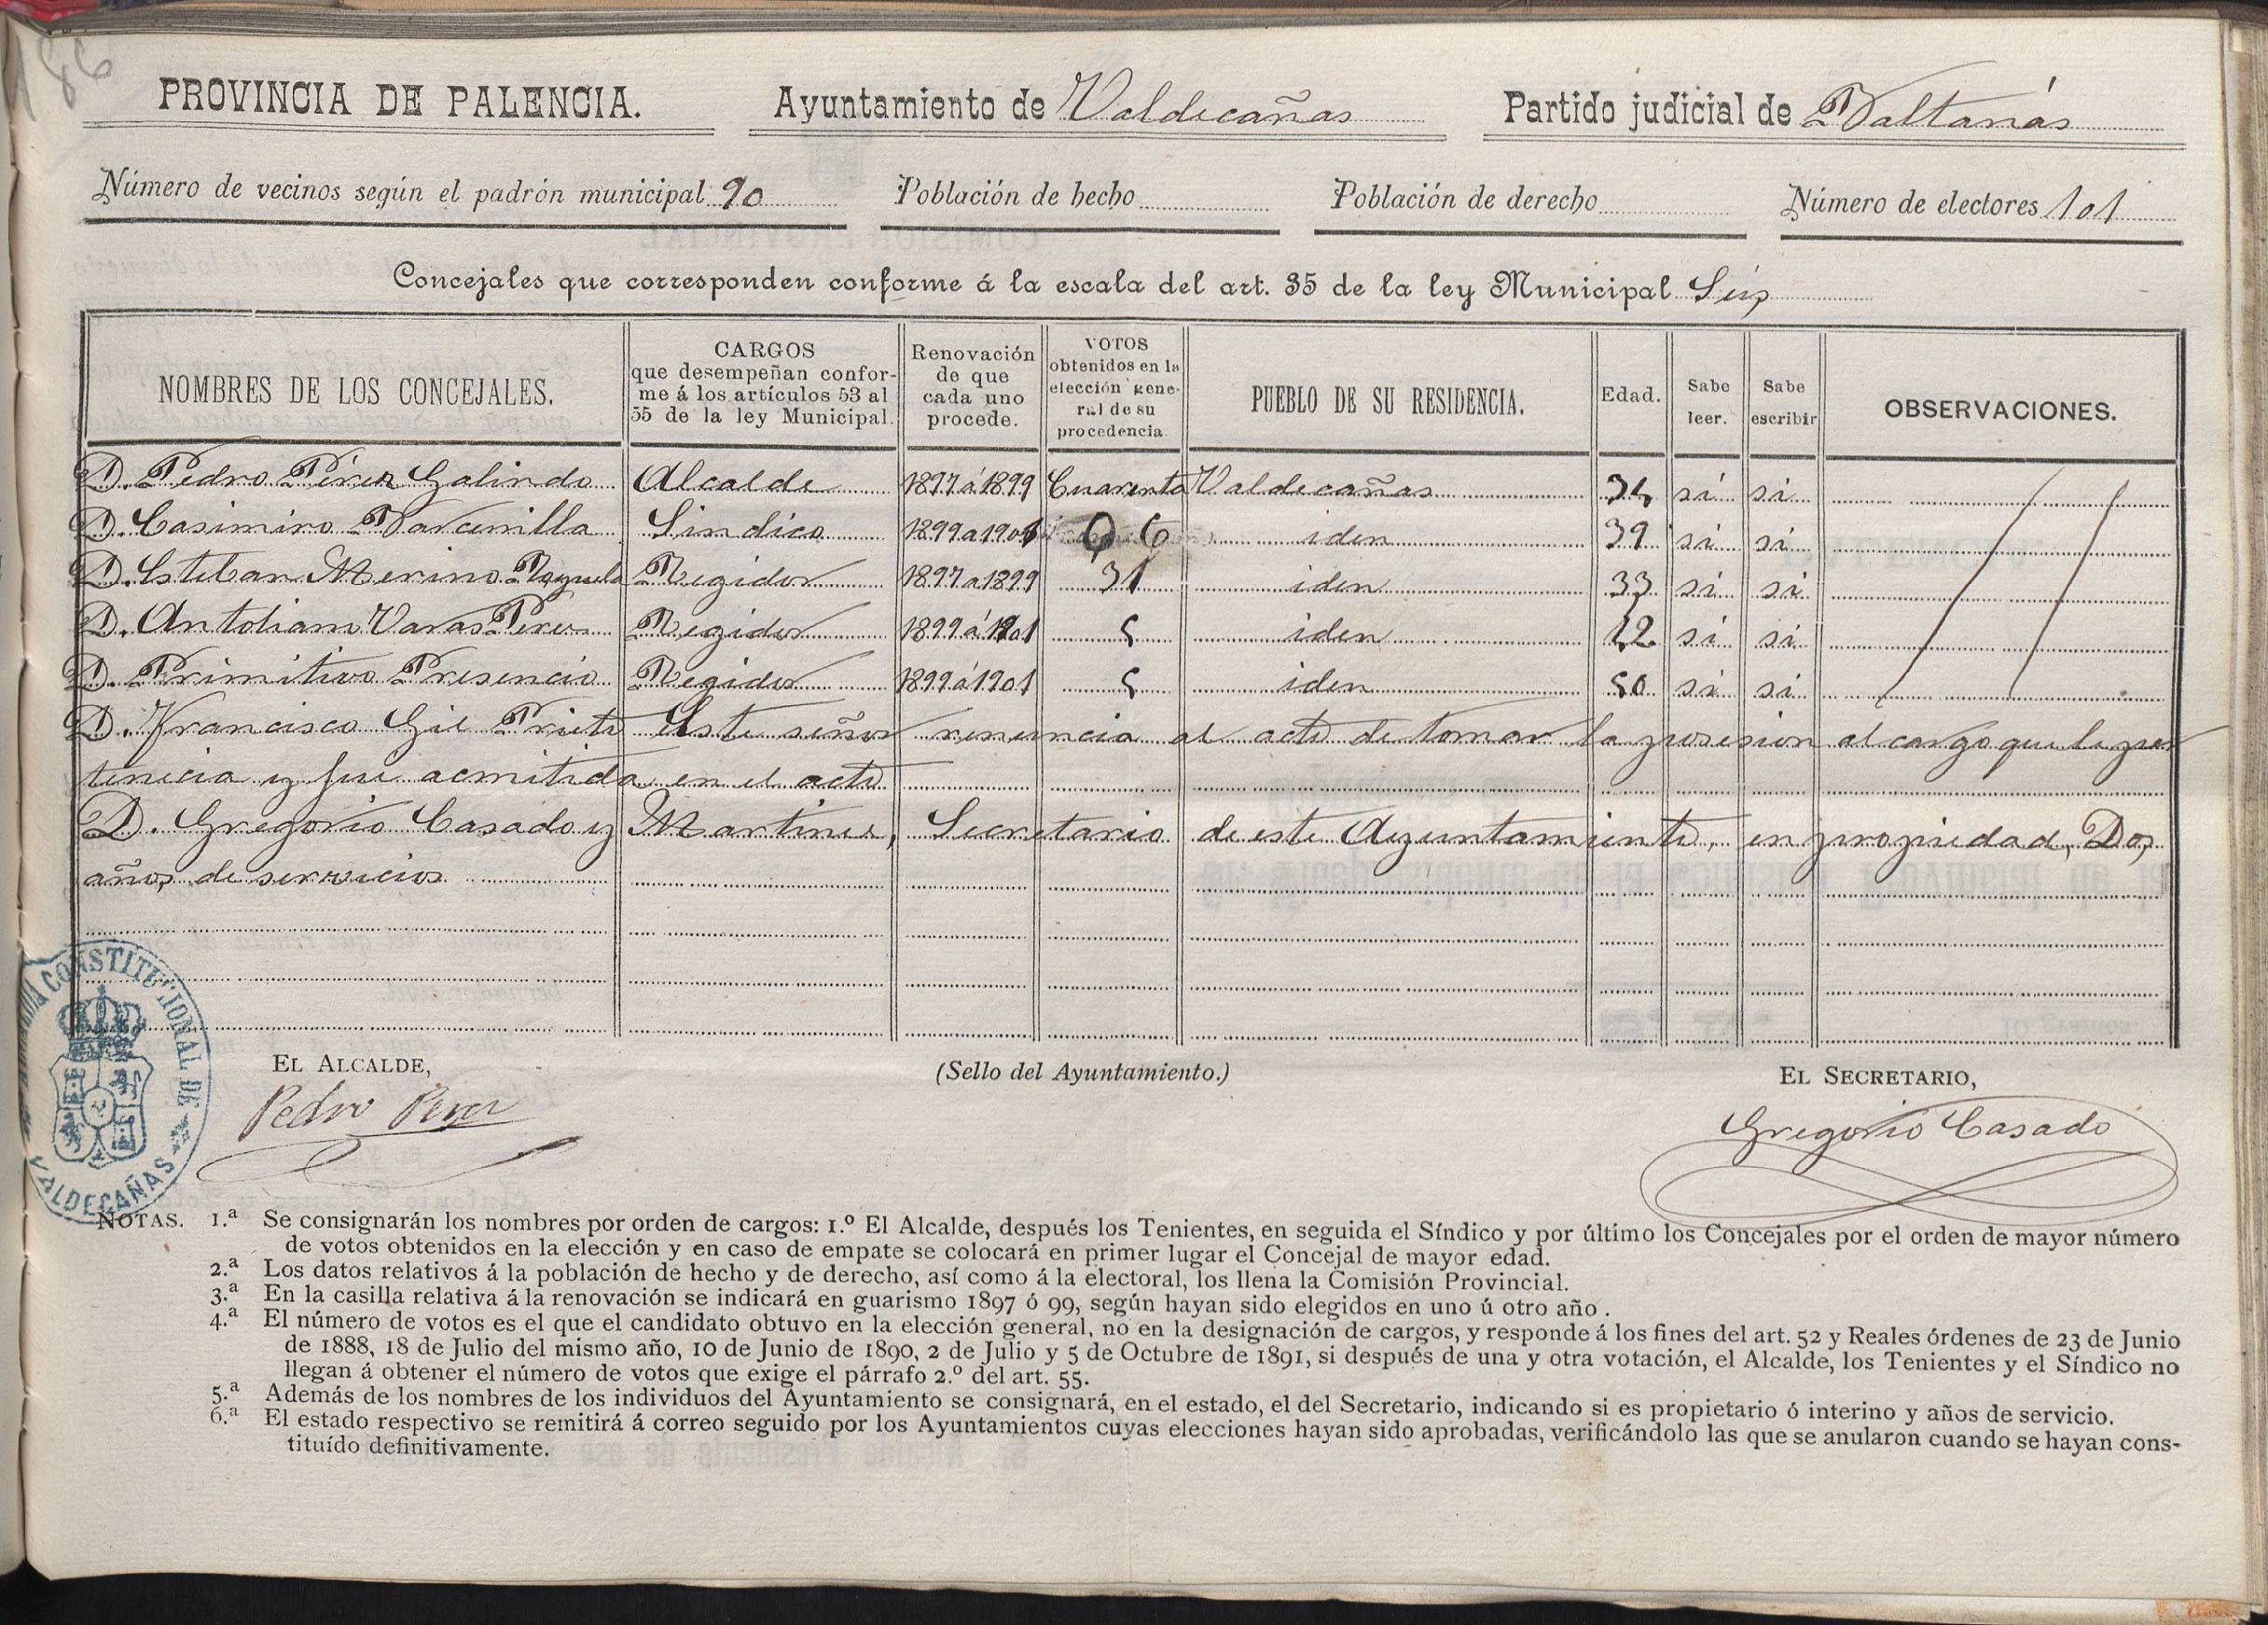 186
PROVINCIA DE PALENCIA. Ayuntamiento de Valdecañas Partido judicial de Baltanás
Número de vecinos según el padrón municipal 90 Población de hecho Población de derecho Número de electores 101
Concejales que corresponden conforme á la escala del art. 35 de la ley Municipal Seis
NOMBRES DE LOS CONCEJALES. CARGOS que desempeñan conforme á los artículos 53 al 55 de la ley Municipal. Renovación de que cada uno procede. VOTOS obtenidos en la elección general de su procedencia PUEBLO DE SU RESIDENCIA. Edad. Sabe leer. Sabe escribir OBSERVACIONES.
D. Pedro Pérez Galindo Alcalde 1897 á 1899 Cuarenta Valdecañas 34 si si
D. Casimiro Barcenilla Sindico 1899 a 1901 6 iden 39 si si
D. Esteban Merino Regidor 1897 a 1899 31 iden 33 si si
D. Antoliano Varas Peres Regidor 1899 á 1901 5 iden si si
D. Primitivo Presencio Regidor 1899 á 1901 5 iden 50 si si
D. Francisco Gil Prieto Este señor renuncia al acto de tomar la posesion al cargo que le per
tenecia y fue acmitida en el acto
D. Gregorio Casado y Martinez, Secretario de este Ayuntamiento, en propiedad, Dos
años de servicios
CONSTITUCIONAL DE VALDECAÑAS
EL ALCALDE, (Sello del Ayuntamiento.) EL SECRETARIO,
Pedro Perez Gregorio Casado
NOTAS. 1.ª Se consignarán los nombres por orden de cargos: 1.º El Alcalde, después los Tenientes, en seguida el Síndico y por último los Concejales por el orden de mayor número
de votos obtenidos en la elección y en caso de empate se colocará en primer lugar el Concejal de mayor edad.
2.ª Los datos relativos á la población de hecho y de derecho, así como á la electoral, los llena la Comisión Provincial.
3.ª En la casilla relativa á la renovación se indicará en guarismo 1897 ó 99, según hayan sido elegidos en uno ú otro año.
4.ª El número de votos es el que el candidato obtuvo en la elección general, no en la designación de cargos, y responde á los fines del art. 52 y Reales órdenes de 23 de Junio
de 1888, 18 de Julio del mismo año, 10 de Junio de 1890, 2 de Julio y 5 de Octubre de 1891, si después de una y otra votación, el Alcalde, los Tenientes y el Síndico no
llegan á obtener el número de votos que exige el párrafo 2.º del art. 55.
5.ª Además de los nombres de los individuos del Ayuntamiento se consignará, en el estado, el del Secretario, indicando si es propietario ó interino y años de servicio.
6.ª El estado respectivo se remitirá á correo seguido por los Ayuntamientos cuyas elecciones hayan sido aprobadas, verificándolo las que se anularon cuando se hayan cons-
tituído definitivamente.